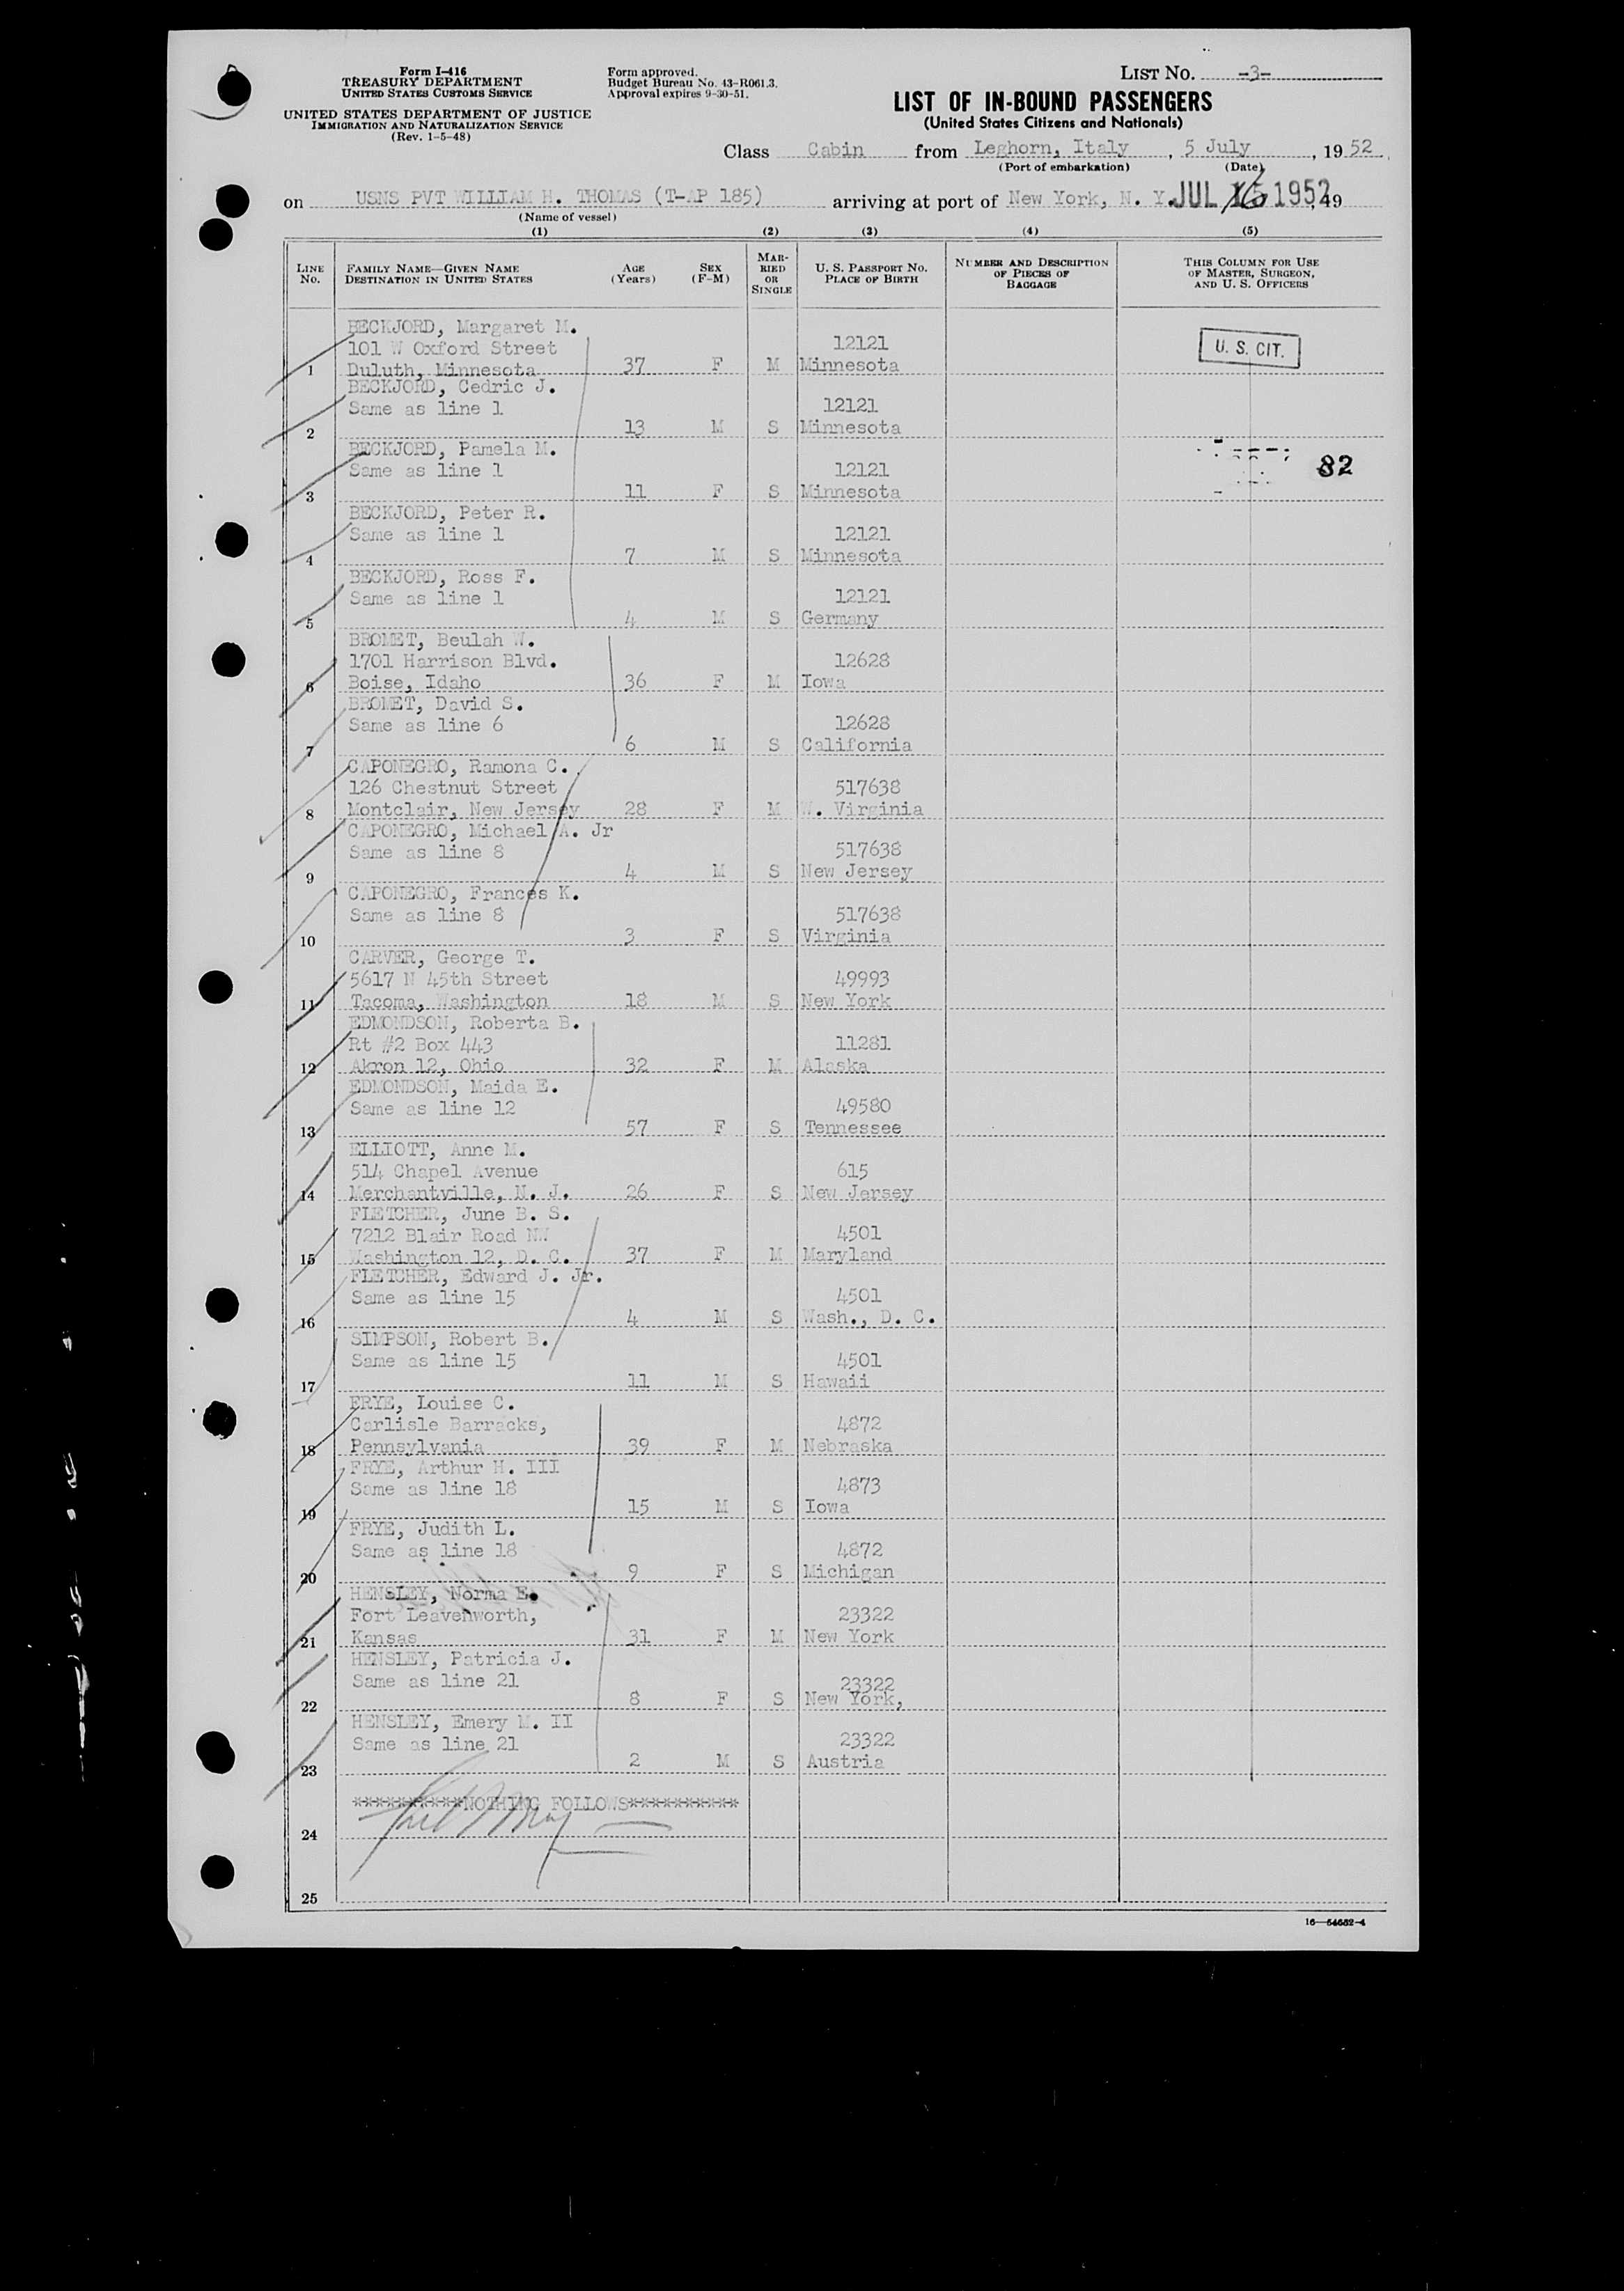 Form I-416
TREASURY DEPARTMENT
UNITED STATES CUSTOMS SERVICE
UNITED STATES DEPARTMENT OF JUSTICE
IMMIGRATION AND NATURALIZATION SERVICE
(Rev. 1-5-48)
Form approved.
Budget Bureau No. 43-R061.3.
Approval expires 9-30-51.
LIST NO. -3-
LIST OF IN-BOUND PASSENGERS
(United States Citizens and Nationals)
Class Cabin from Leghorn, Italy, 5 July, 1952
(Port of embarkation) (Date)
on USNS PVT WILLIAM H. THOMAS (T-AP 185) arriving at port of New York, N. Y. JUL 16 1952, 49
(Name of vessel)
(1) (2) (3) (4) (5)
LINE NO.
FAMILY NAME—GIVEN NAME
DESTINATION IN UNITED STATES
AGE (Years)
SEX (F-M)
MARRIED OR SINGLE
U. S. PASSPORT NO.
PLACE OF BIRTH
NUMBER AND DESCRIPTION OF PIECES OF BAGGAGE
THIS COLUMN FOR USE OF MASTER, SURGEON, AND U. S. OFFICERS
BECKJORD, Margaret M.
101 W Oxford Street 12121 U. S. CIT.
1 Duluth, Minnesota 37 F M Minnesota
BECKJORD, Cedric J.
Same as line 1 12121
2 13 M S Minnesota
BECKJORD, Pamela M.
Same as line 1 12121 82
3 11 F S Minnesota
BECKJORD, Peter R.
Same as line 1 12121
4 7 M S Minnesota
BECKJORD, Ross F.
Same as line 1 12121
5 4 M S Germany
BROMET, Beulah W.
1701 Harrison Blvd. 12628
6 Boise, Idaho 36 F M Iowa
BROMET, David S.
Same as line 6 12628
7 6 M S California
CAPONEGRO, Ramona C.
126 Chestnut Street 517638
8 Montclair, New Jersey 28 F M W. Virginia
CAPONEGRO, Michael A. Jr
Same as line 8 517638
9 4 M S New Jersey
CAPONEGRO, Frances K.
Same as line 8 517638
10 3 F S Virginia
CARVER, George T.
5617 N 45th Street 49993
11 Tacoma, Washington 18 M S New York
EDMONDSON, Roberta B.
Rt #2 Box 443 11281
12 Akron 12, Ohio 32 F M Alaska
EDMONDSON, Maida E.
Same as line 12 49580
13 57 F S Tennessee
ELLIOTT, Anne M.
514 Chapel Avenue 615
14 Merchantville, N. J. 26 F S New Jersey
FLETCHER, June B. S.
7212 Blair Road NW 4501
15 Washington 12, D. C. 37 F M Maryland
FLETCHER, Edward J. Jr.
Same as line 15 4501
16 4 M S Wash., D. C.
SIMPSON, Robert B.
Same as line 15 4501
17 11 M S Hawaii
FRYE, Louise C.
Carlisle Barracks, 4872
18 Pennsylvania 39 F M Nebraska
FRYE, Arthur H. III
Same as line 18 4873
19 15 M S Iowa
FRYE, Judith L.
Same as line 18 4872
20 9 F S Michigan
HENSLEY, Norma E.
Fort Leavenworth, 23322
21 Kansas 31 F M New York
HENSLEY, Patricia J.
Same as line 21 23322
22 8 F S New York,
HENSLEY, Emery M. II
Same as line 21 23322
23 2 M S Austria
***********NOTHING FOLLOWS***********
24
25
16—54682-4